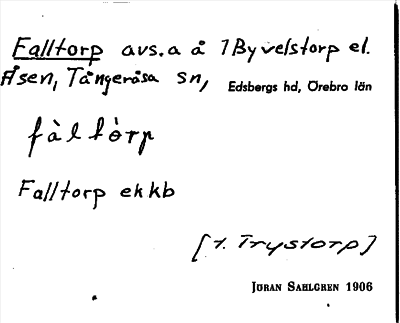 Falltorp avs. a å 7 Byvelstorp el.
Åsen, Tångeråsa sn, Edsbergs hd, Örebro län
fàltòrp
Falltorp ekkb
[t. Trystorp]
JÖRAN SAHLGREN 1906